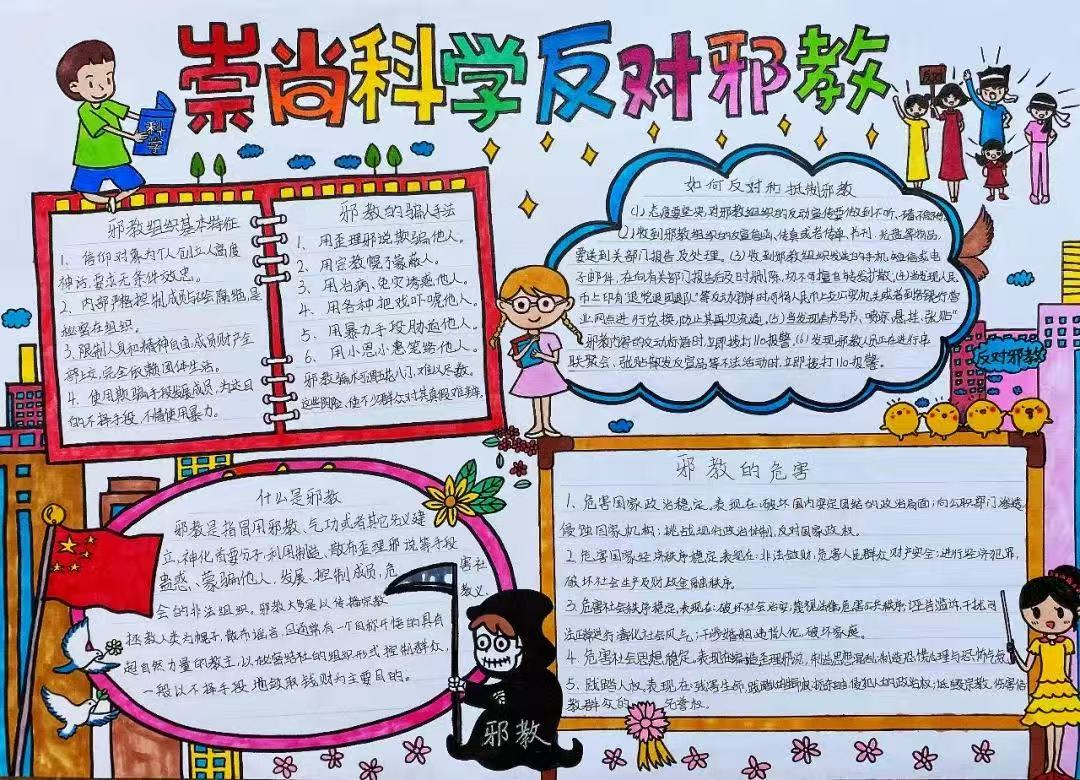 崇尚科学反对邪教
科学
反对
邪教组织基本特征
1、信仰对象为个人创立人高度
神话,要求无条件效忠。
2、内部严格控制成员与社会隔绝,是
秘密在组织。
3、限制人身和精神自由,成员财产全
部上交,完全依赖团体生活。
4、使用欺骗手段发展成员,为达目
的不择手段,不惜使用暴力。
邪教的骗人手法
1、用歪理邪说欺骗他人。
2、用宗教幌子蒙蔽人。
3、用治病、免灾诱惑他人。
4、用各种把戏吓唬他人。
5、用暴力手段胁迫他人。
6、用小恩小惠笼络他人。
邪教骗术五花八门,难以尽数。
使不少群众对其真假难辨。
如何反对和抵制邪教
(1)态度要坚决,对邪教组织的反动宣传要做到不听、不信、不传。
(2)收到邪教组织的反宣信函、传单或者传单、书刊、光盘等物品,
要送到关部门报告及处理。(3)收到邪教组织发送的手机短信或电
子邮件,在向有关部门报告后及时删除,切不可擅自转发扩散。(4)当发现人民
币上印有
业网点进行兑换,防止其再次流通。(5)当发现法书写书、喷涂、悬挂、张贴"
邪教内容的反动标语时立即拨打110报警。(6)发现邪教人员正在进行串
联聚会、张贴散发反宣品等不法活动时,立即拨打110报警。
反对邪教
什么是邪教
邪教是指冒用邪教、气功或者其它名义建
立,神化首要分子,利用制造、散布歪理邪说等手段
蛊惑、蒙骗他人,发展、控制成员,危害社
会的非法组织。邪教大多是以传播宗教教义、
拯救人类为幌子,散布谣言,且通常有一个自称开悟的具有
超自然力量的教主,以秘密结社的组织形式控制群众,
一般以不择手段地敛取钱财为主要目的。
邪教
邪教的危害
1、危害国家政治稳定。表现在:破坏国内安定团结的政治局面;向公职部门渗透,
侵蚀国家机构;挑战现有政治体制,反对国家政权。
2、危害国家经济秩序稳定表现在:非法敛财,危害人民群众财产安全;进行经济犯罪,
破坏社会生产及财政金融秩序。
3、危害社会秩序稳定,表现在:破坏社会治安,蔑视法律,危害公共秩序;
法正常进行;毒化社会风气;干涉婚姻,违背人伦,破坏家庭。
4、危害社会思想稳定。表现在:编造歪理邪说,制造思想混乱;制造恐惧心理与恐怖气氛。
5、践踏人权,表现在:残害生命,
教群众的